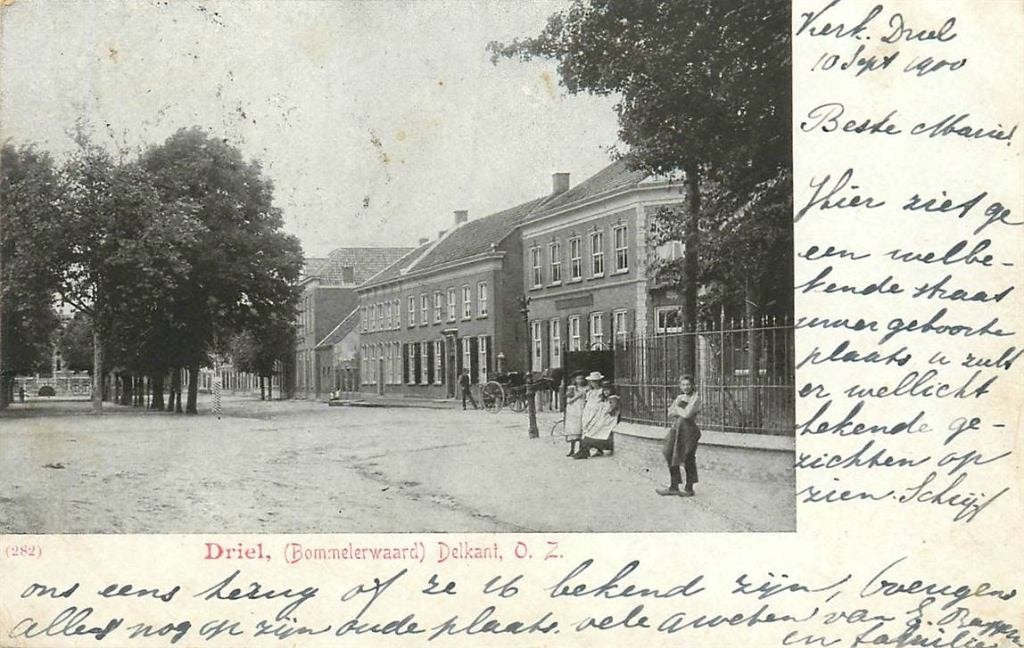 Kerk. Driel
10 Sept 1900
Beste Marie!
Hier ziet ge
een welbe-
kende straat
uwer geboorte
plaats u zult
er wellicht
bekende ge-
zichten op
zien. Schrijf
(282) Driel, (Bommelerwaard) Delkant, O. Z.
ons eens terug of ze U bekend zijn, overigens
alles nog op zijn oude plaats. vele groeten van E.
en familie